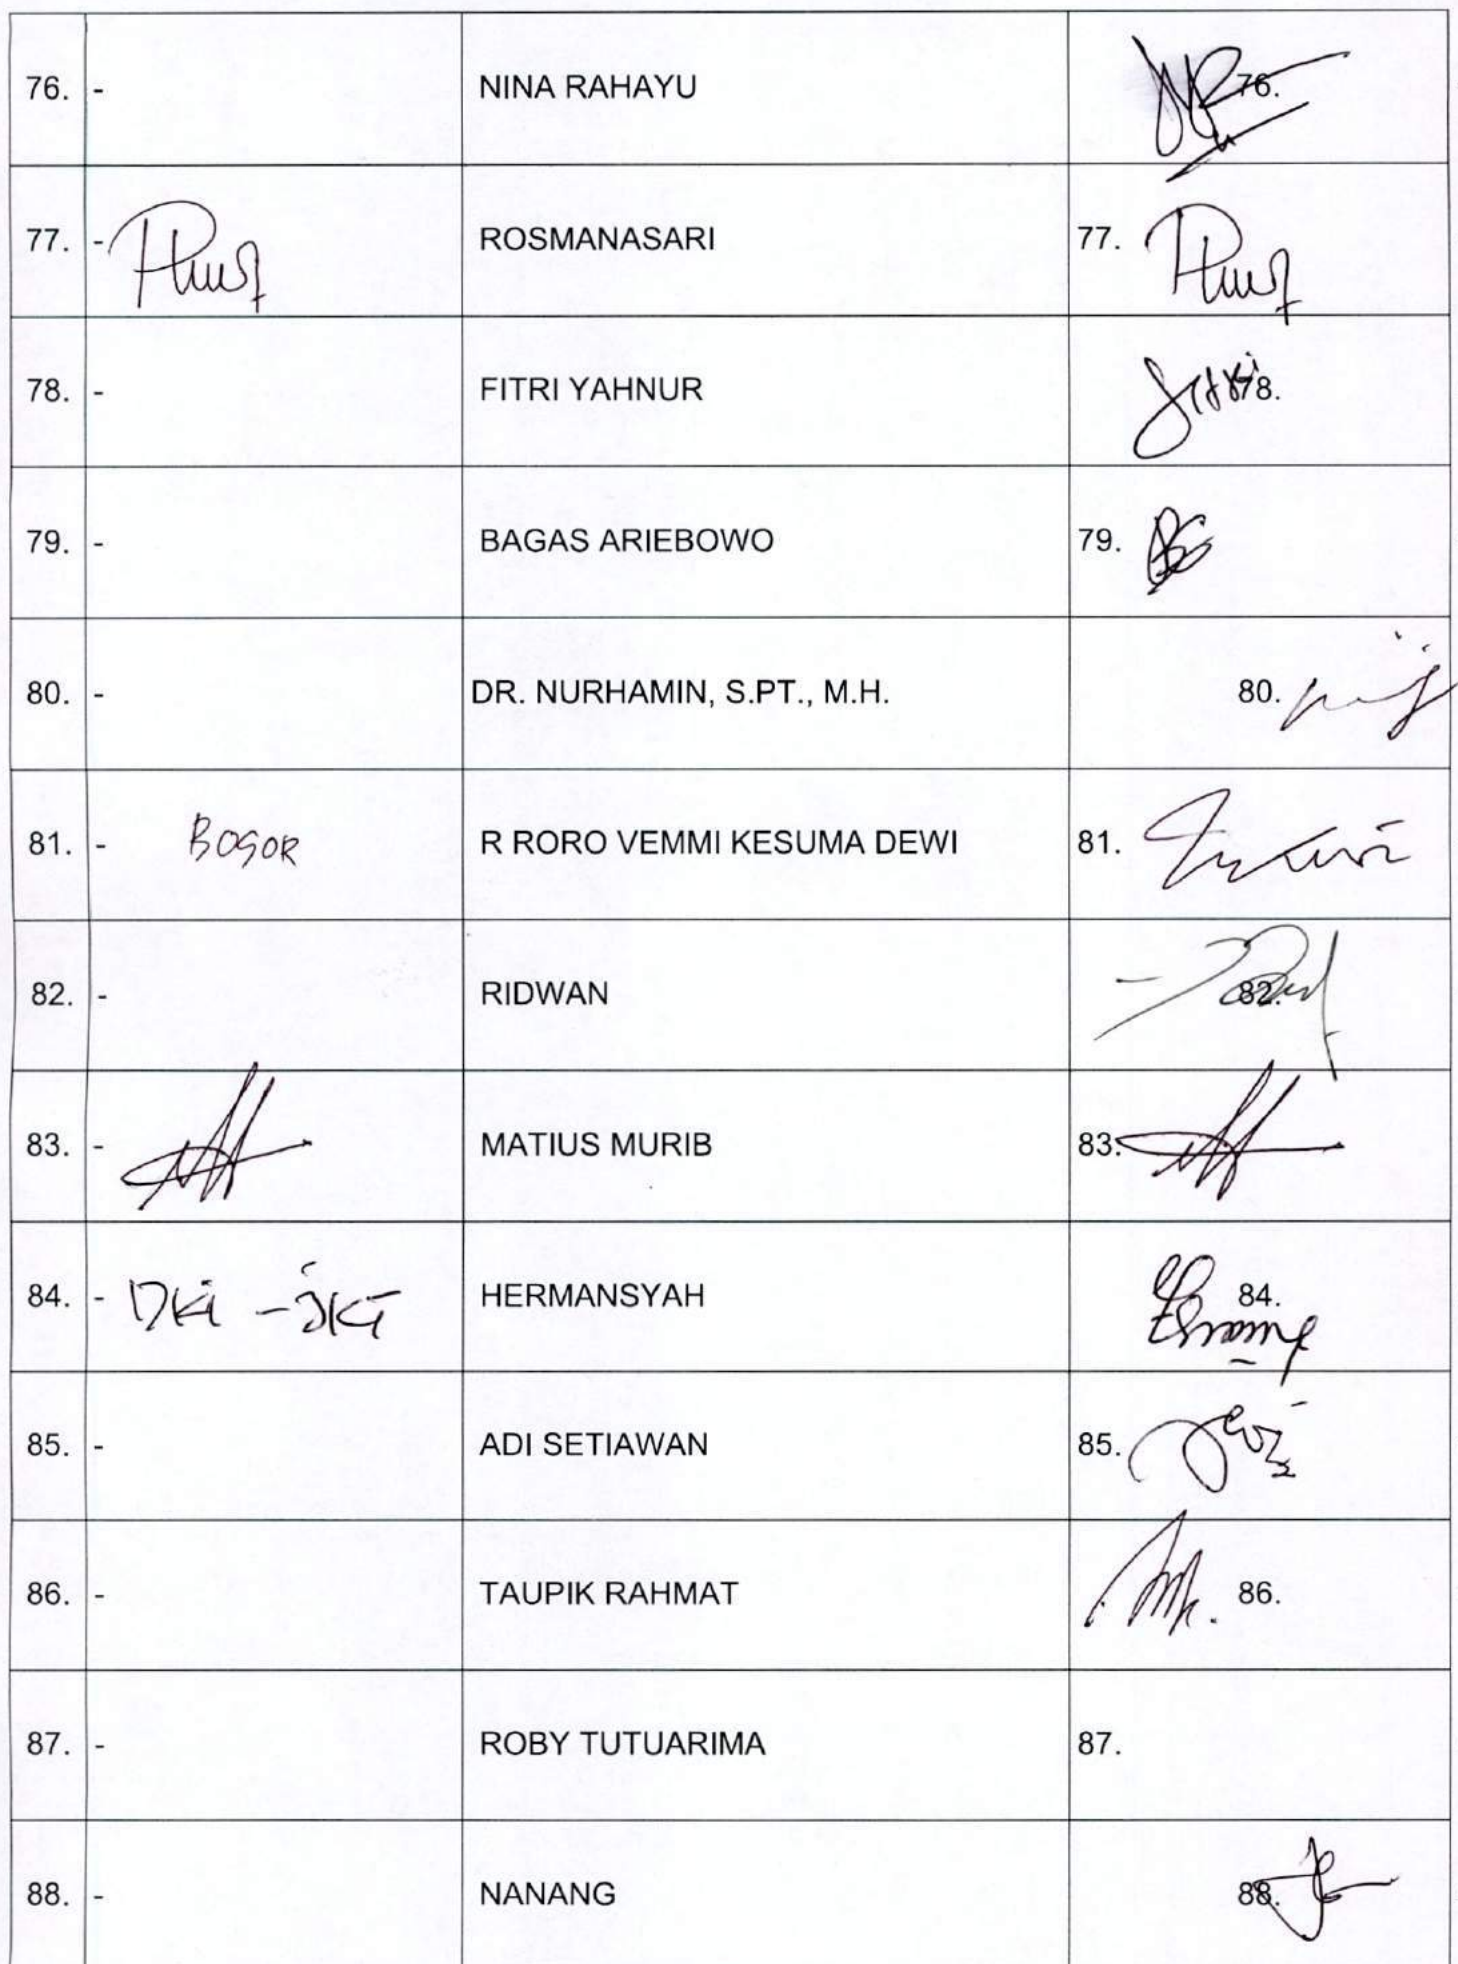 76. - NINA RAHAYU 76.
77. - ROSMANASARI 77.
78. - FITRI YAHNUR 78.
79. - BAGAS ARIEBOWO 79.
80. - DR. NURHAMIN, S.PT., M.H. 80.
81. - BOGOR R RORO VEMMI KESUMA DEWI 81.
82. - RIDWAN 82.
83. - MATIUS MURIB 83.
84. - DKI - JKT HERMANSYAH 84.
85. - ADI SETIAWAN 85.
86. - TAUPIK RAHMAT 86.
87. - ROBY TUTUARIMA 87.
88. - NANANG 88.